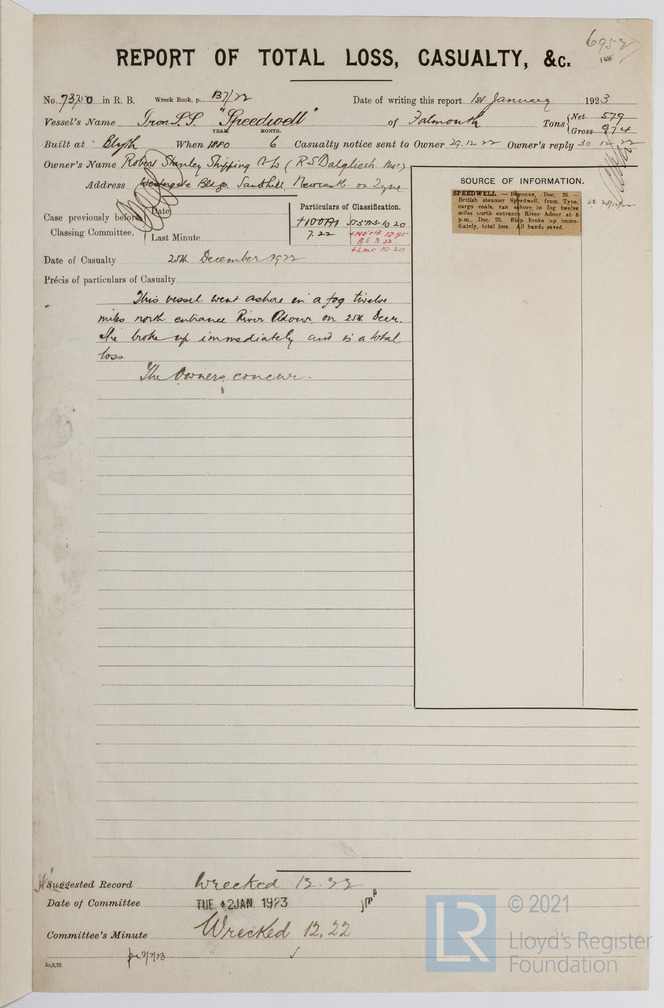 6952
REPORT OF TOTAL LOSS, CASUALTY, &c.
No. 73750 in R. B. Wreck Book, p. 137/22 Date of writing this report 1st January 1923
Vessel's Name Iron S.S. "Speedwell" of Falmouth Tons {Net 579 Gross 974
YEAR. MONTH.
Built at Blyth When 1880 6 Casualty notice sent to Owner 29.12.22 Owner's reply 30.12.22
Owner's Name Robert Stanley Shipping Co Ld (R S Dalgliesh Mgr)
Address Bldgs. Sandhill Newcastle on Tyne
Case previously before Classing Committee. {Date
Last Minute
Particulars of Classification.
+100A1
7.22
10.20
+LMC 10.20
Date of Casualty 25th December 1922
Précis of particulars of Casualty
This vessel went ashore in a fog twelve
miles north entrance River Adour on 25th Decr.
She broke up immediately and is a total
loss
The Owners concur.
SOURCE OF INFORMATION.
SPEEDWELL. — Bayonne, Dec. 26.
British steamer Speedwell, from Tyne,
cargo coals, ran ashore in fog twelve
miles north entrance River Adour at 6
p.m., Dec. 25. Ship broke up imme-
diately, total loss. All hands saved.
Suggested Record Wrecked 12.22
Date of Committee TUE. 2 JAN 1923
Committee's Minute Wrecked 12,22
© 2021
LR
Lloyd's Register
Foundation